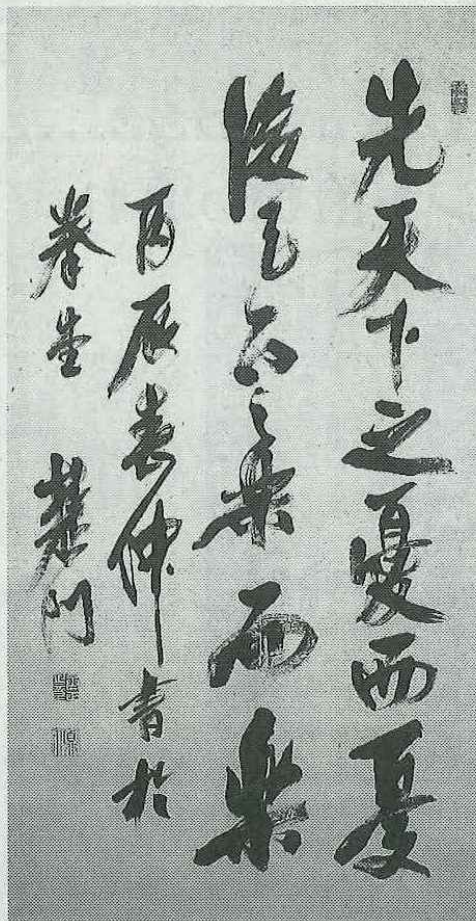 先天下之憂而憂
後天下之樂而樂
丙辰春仲書於
拳生 楚門